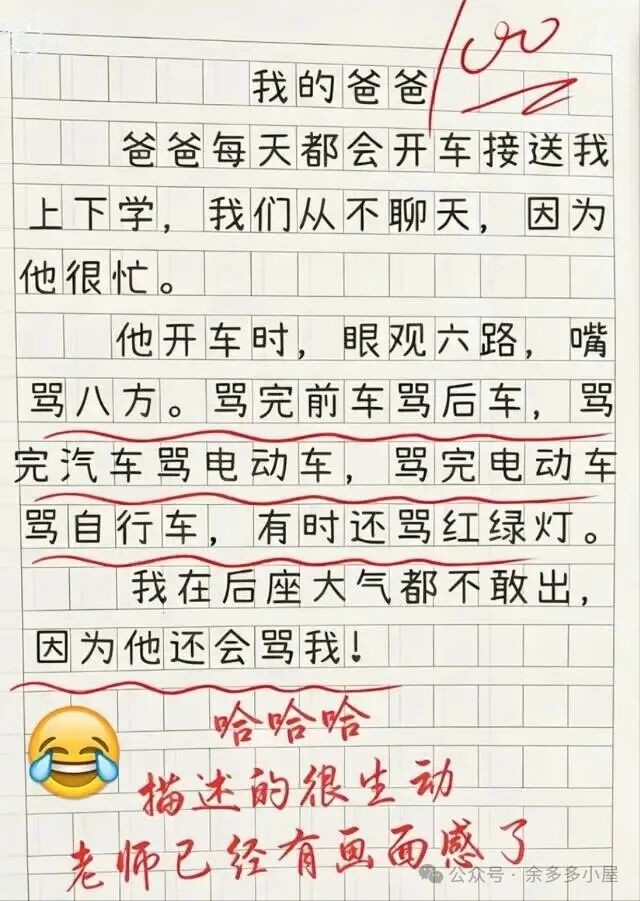 100
我的爸爸
爸爸每天都会开车接送我
上下学，我们从不聊天，因为
他很忙。
他开车时，眼观六路，嘴
骂八方。骂完前车骂后车，骂
完汽车骂电动车，骂完电动车
骂自行车，有时还骂红绿灯。
我在后座大气都不敢出，
因为他还会骂我！
哈哈哈
描述的很生动
老师已经有画面感了
公众号·余多多小屋